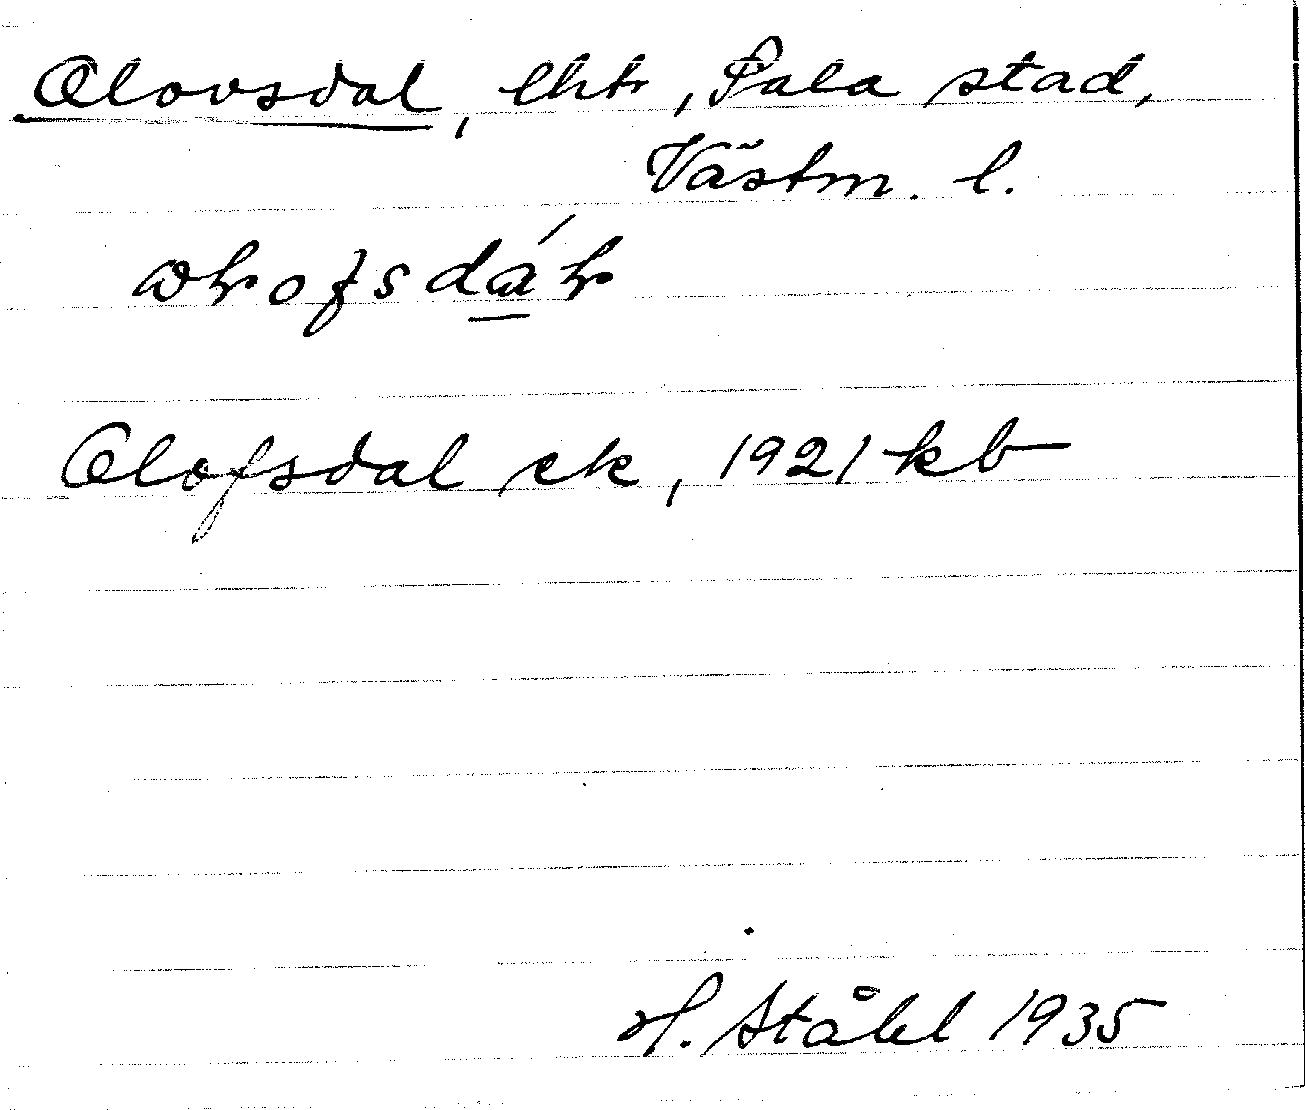 Olovsdal, lht, Sala stad,
Västm. l.
Olofsdal ek, 1921 kb
H. Ståhl 1935